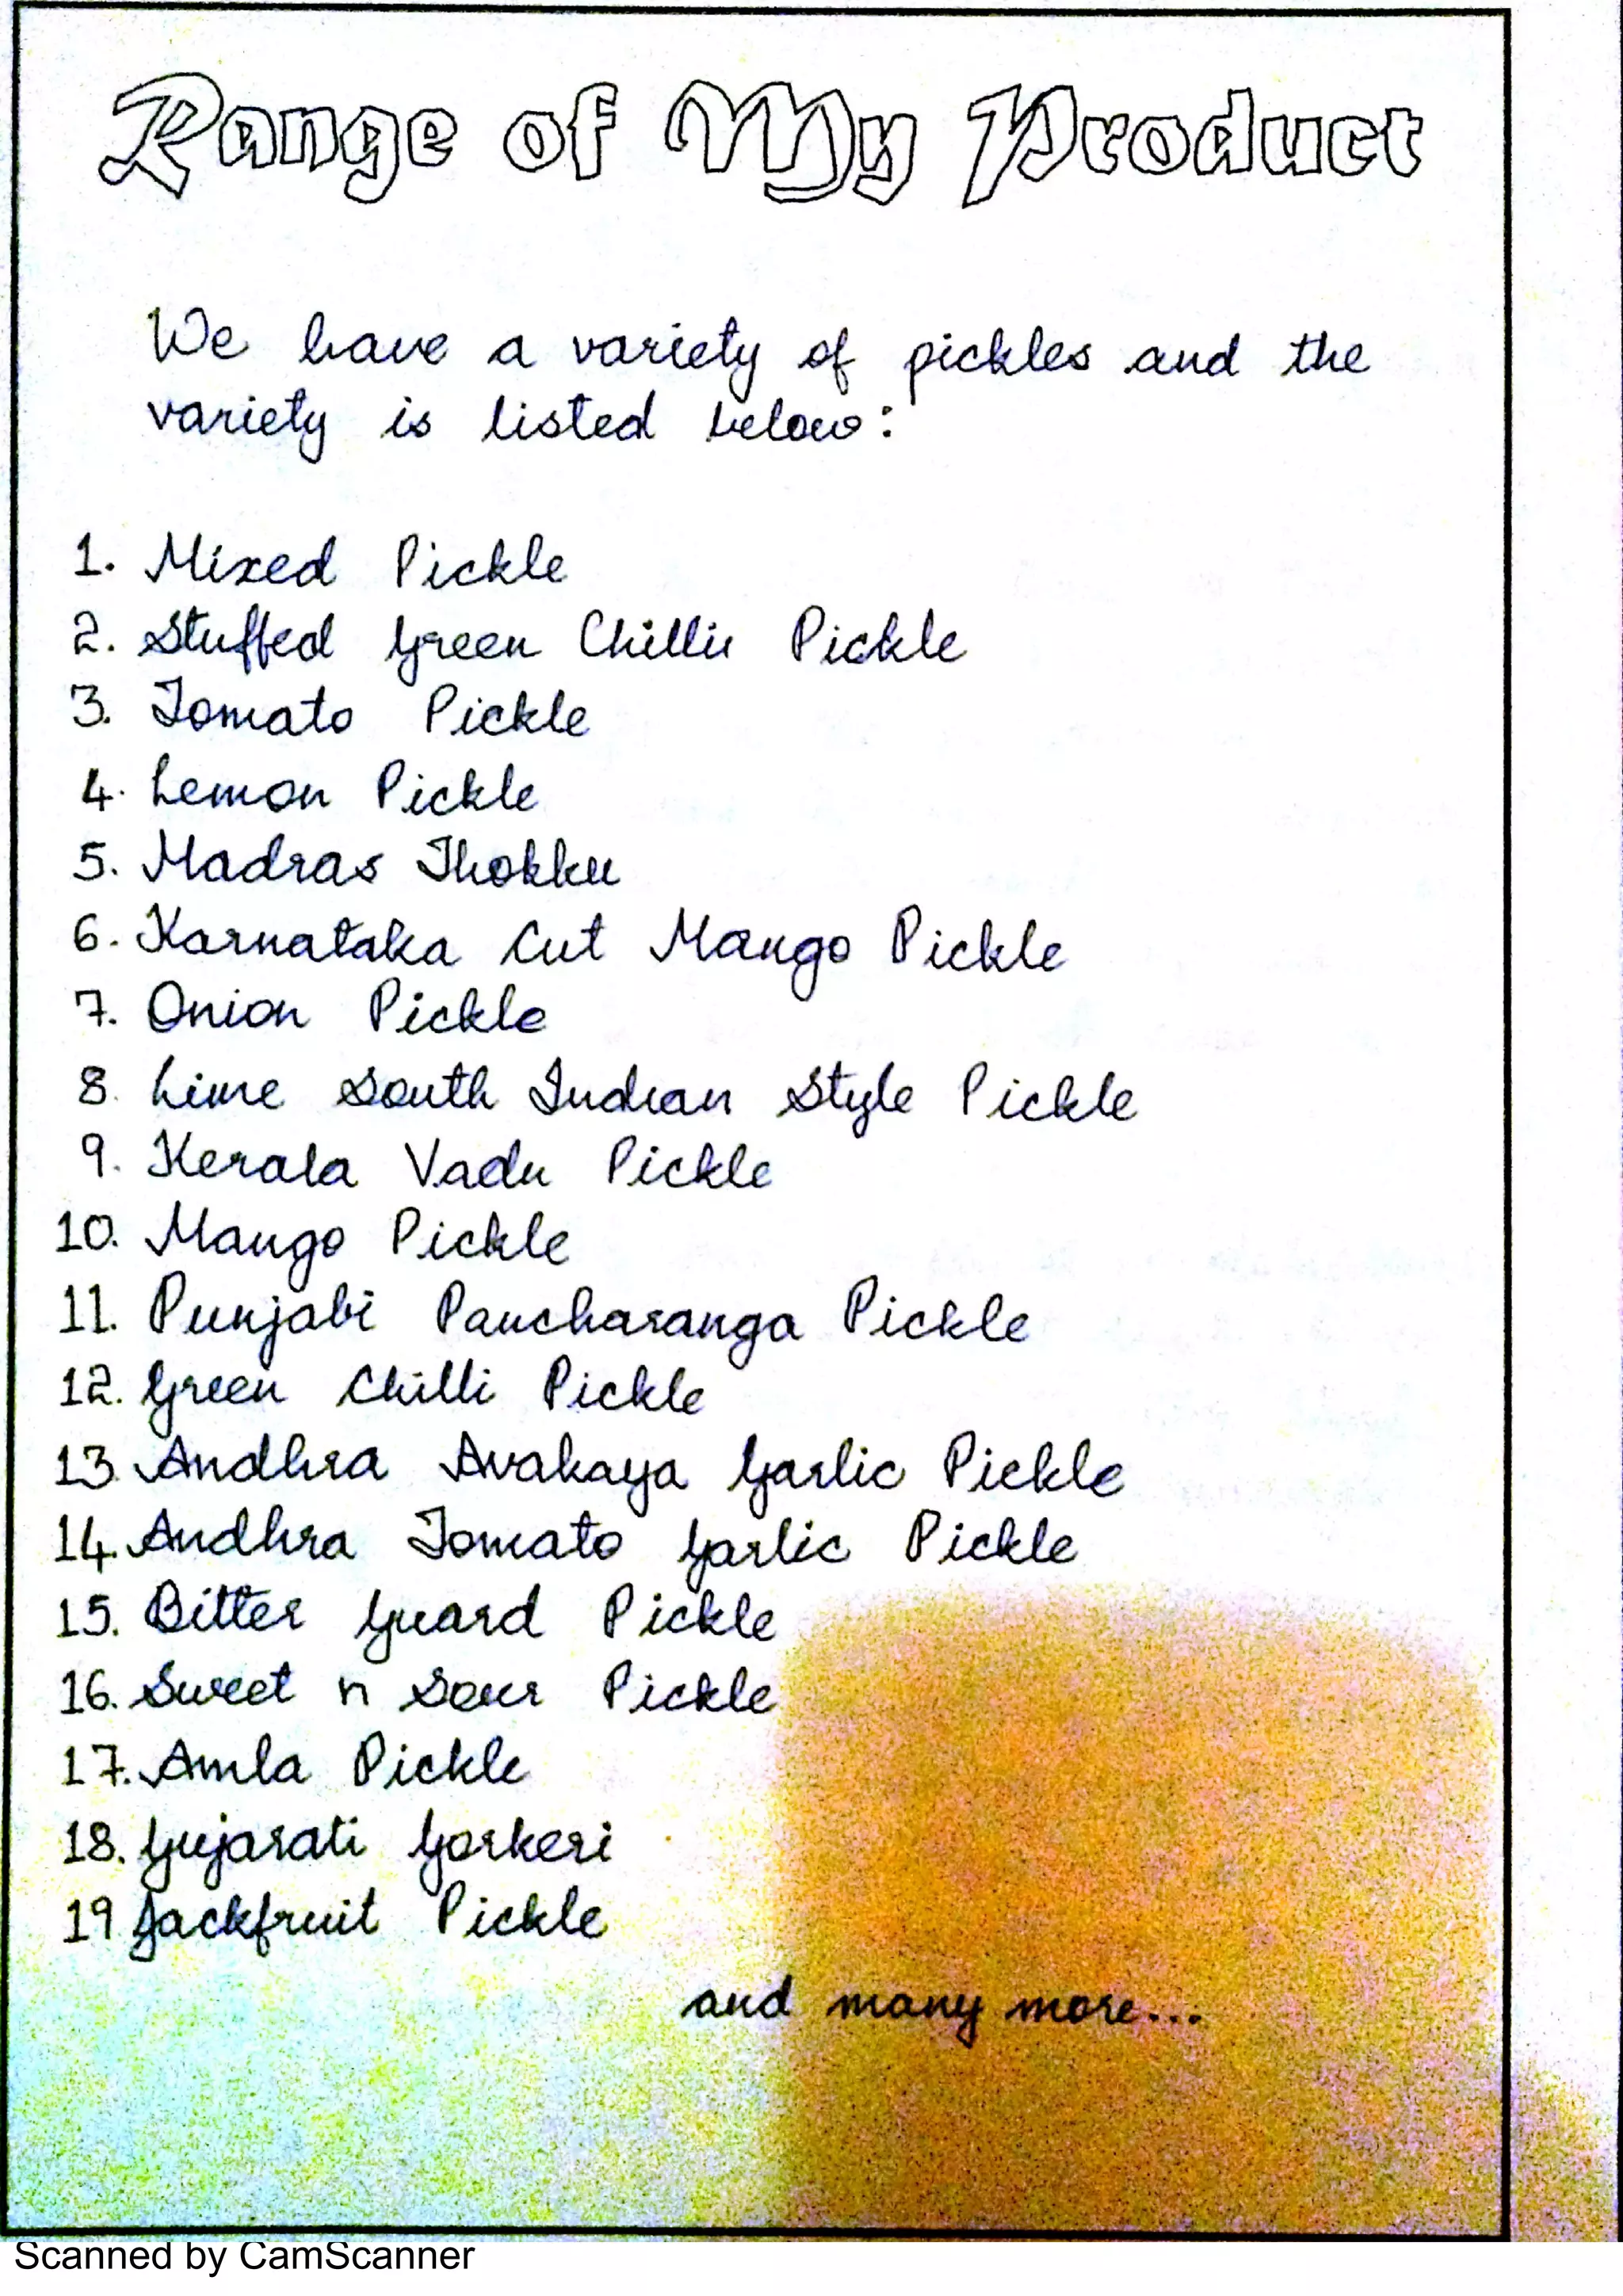 Range of My Product
We have a variety of pickles and the
variety is listed below:
1. Mixed Pickle
2. Stuffed Green Chillie Pickle
3. Tomato Pickle
4. Lemon Pickle
5. Madras Thokku
6. Karnataka Cut Mango Pickle
7. Onion Pickle
8. Lime South Indian Style Pickle
9. Kerala Vadu Pickle
10. Mango Pickle
11. Punjabi Pancharanga Pickle
12. Green Chilli Pickle
13. Andhra Avakaya Garlic Pickle
14. Andhra Tomato Garlic Pickle
15. Bitter Guard Pickle
16. Sweet n Sour Pickle
17. Amla Pickle
18. Gujarati Gorkeri
19 Jackfruit Pickle
and many more...
Scanned by CamScanner